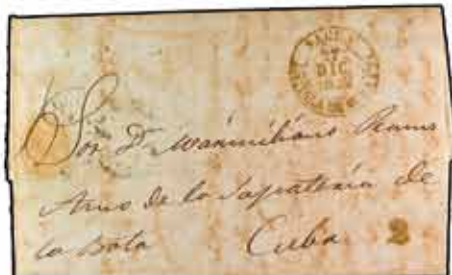 DIC
Sor Dn Maximiliano Ramos
Amo de la Sapateria de
la Bota Cuba 2